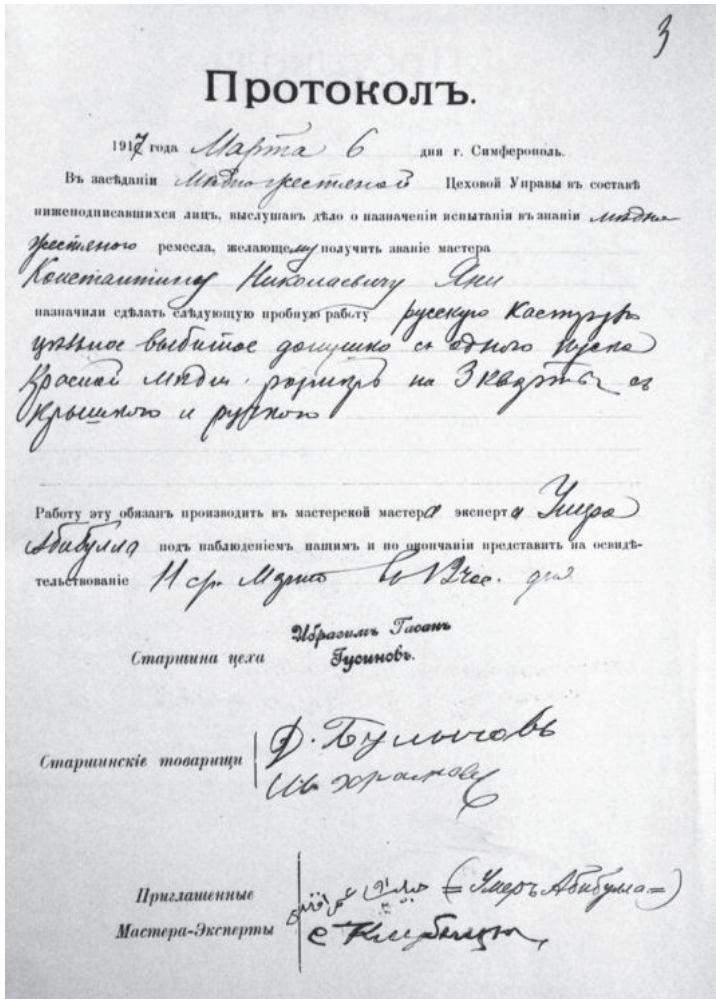 3
Протоколъ.
1917 года Марта 6 дня г. Симферополь.
Въ засѣданіи Мѣдножестяной Цеховой Управы въ составѣ
нижеподписавшихся лицъ, выслушавъ дѣло о назначеніи испытанія въ знаніи мѣдно
жестяного ремесла, желающему получить званіе мастера
Константину Николаевичу Яни
назначили сдѣлать слѣдующую пробную работу русскую кастрюлю
цѣльное выбитое донушко съ одного куска
Красной мѣди размѣръ на 3 кварты съ
крышкою и ручкою
Работу эту обязанъ производить въ мастерской мастера эксперта Умера
Абибулла подъ наблюденіемъ нашимъ и по окончаніи представить на освидѣ-
тельствованіе 11 ср. Марта въ 12 час. дня
Старшина цеха Ибрагимъ Гасанъ
Гусиновъ.
Старшинскіе товарищи Д. Булычовъ
Приглашенные (=Умеръ Абибулла=)
Мастера-Эксперты